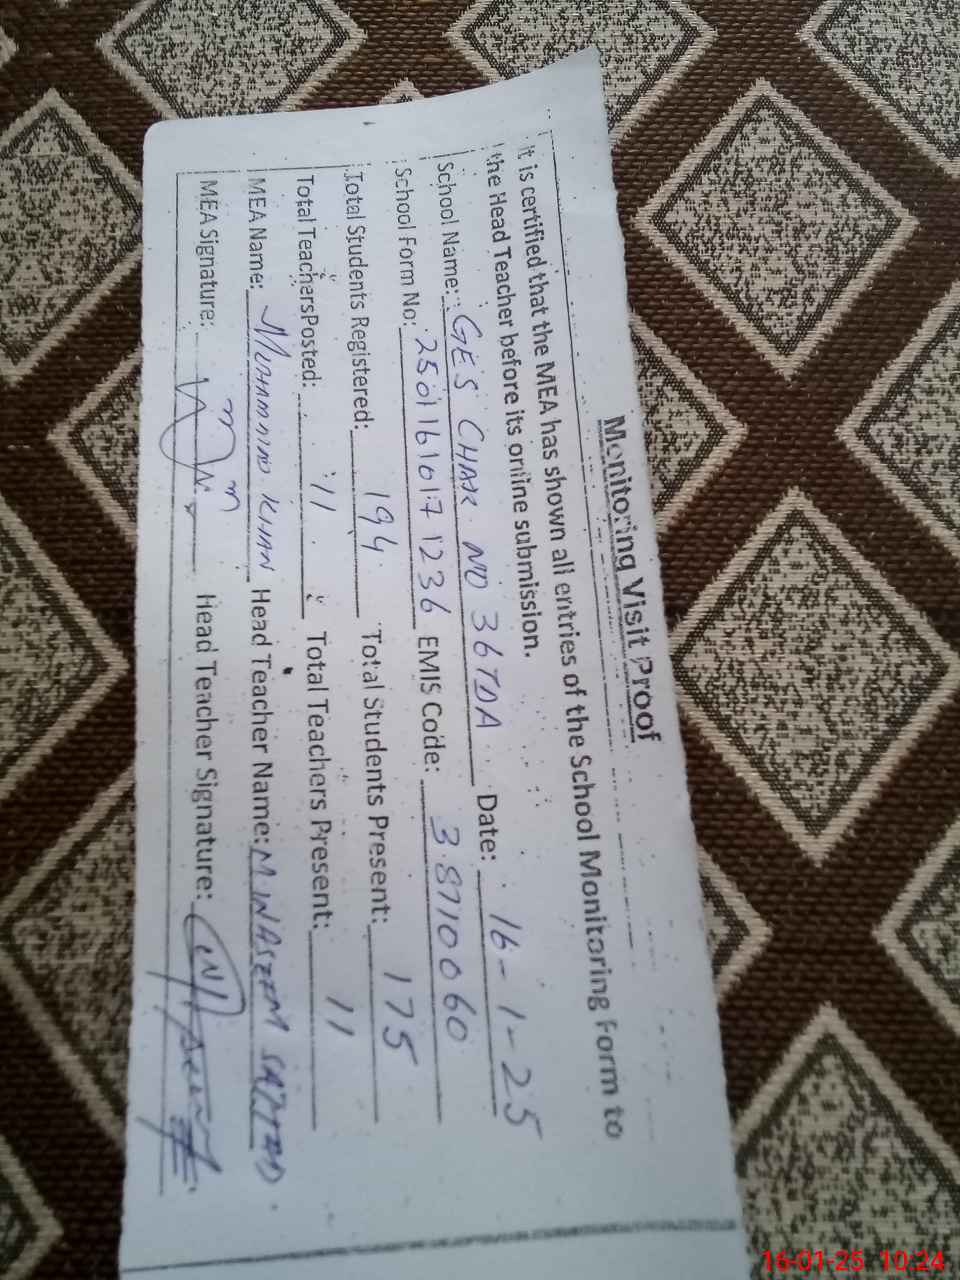 Monitoring Visit Proof
It is certified that the MEA has shown all entries of the School Monitoring Form to
the Head Teacher before its online submission.
School Name: GES CHAK NO 36TDA Date: 16-1-25
School Form No: 2501161017 1236 EMIS Code: 38710060
Total Students Registered: 194 Total Students Present: 175
Total Teachers Posted: 11 Total Teachers Present: 11
MEA Name: MUHAMMAD KHAN Head Teacher Name: M. NASEEM SAJJAD.
MEA Signature: Head Teacher Signature:
16-01-25 10:24